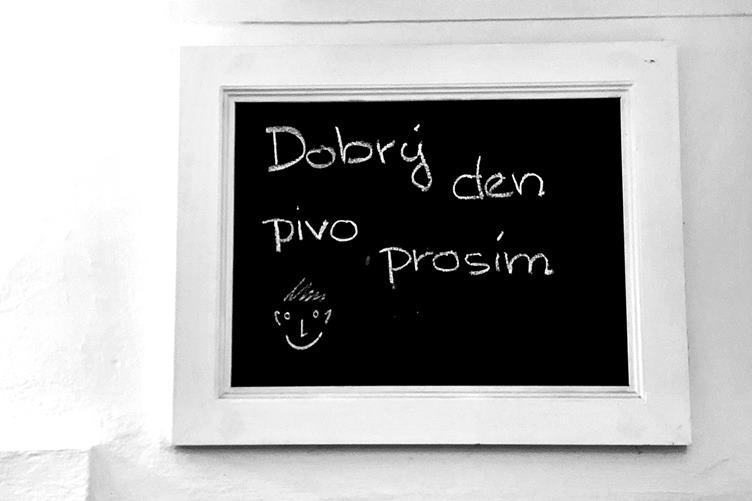 Dobrý den
pivo prosím